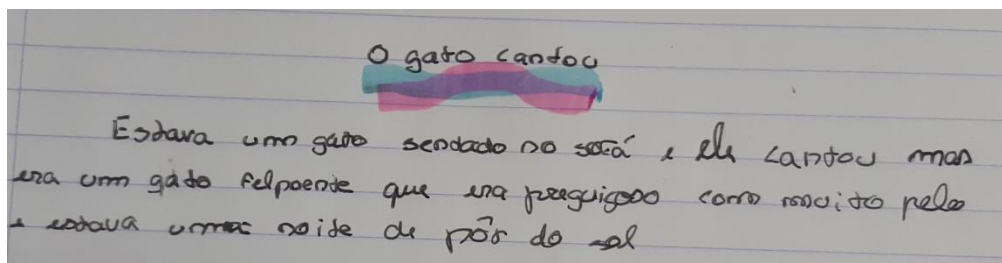 O gato cantou
Estava um gato sentado no sofá e ele cantou mas
era um gato felpoente que era preguiçoso com muito pelo
e estava uma noite de pôr do sol